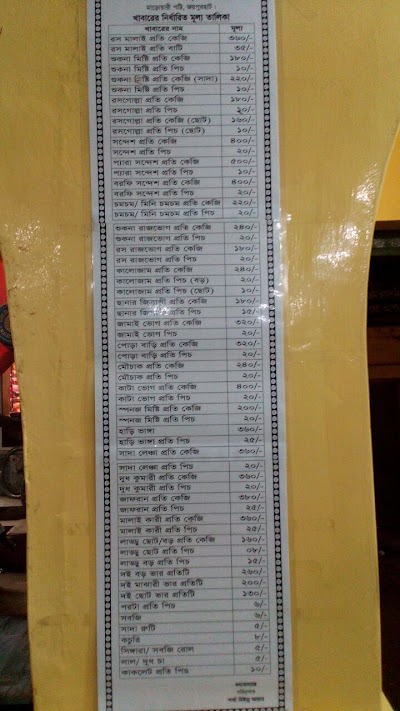 মাড়োয়ারী পট্টি, জয়পুরহাট।
খাবারের নির্ধারিত মূল্য তালিকা
খাবারের নাম মূল্য
রস মালাই প্রতি কেজি ৩৬০/-
রস মালাই প্রতি বাটি ৩৫/-
শুকনা মিষ্টি প্রতি কেজি ১৮০/-
শুকনা মিষ্টি প্রতি পিচ ১০/-
শুকনা মিষ্টি প্রতি কেজি (সাদা) ২২০/-
শুকনা মিষ্টি প্রতি পিচ ১০/-
রসগোল্লা প্রতি কেজি ১৮০/-
রসগোল্লা প্রতি পিচ ২০/-
রসগোল্লা প্রতি কেজি (ছোট) ১৬০/-
রসগোল্লা প্রতি পিচ (ছোট) ১০/-
সন্দেশ প্রতি কেজি ৪০০/-
সন্দেশ প্রতি পিচ ২০/-
প্যারা সন্দেশ প্রতি কেজি ৫০০/-
প্যারা সন্দেশ প্রতি পিচ ১০/-
বরফি সন্দেশ প্রতি কেজি ৪০০/-
বরফি সন্দেশ প্রতি পিচ ২০/-
চমচম/ মিনি চমচম প্রতি কেজি ২২০/-
চমচম/ মিনি চমচম প্রতি পিচ ২০/-
শুকনা রাজভোগ প্রতি কেজি ২৪০/-
শুকনা রাজভোগ প্রতি পিচ ২০/-
রস রাজভোগ প্রতি কেজি ১৮০/-
রস রাজভোগ প্রতি পিচ ২০/-
কালোজাম প্রতি কেজি ২৪০/-
কালোজাম প্রতি পিচ (বড়) ২০/-
কালোজাম প্রতি পিচ (ছোট) ১০/-
ছানার জিলাপী প্রতি কেজি ১৮০/-
ছানার জিলাপী প্রতি পিচ ১৫/-
জামাই ভোগ প্রতি কেজি ৩২০/-
জামাই ভোগ প্রতি পিচ ২০/-
পোড়া বাড়ি প্রতি কেজি ৩২০/-
পোড়া বাড়ি প্রতি পিচ ২০/-
মৌচাক প্রতি কেজি ২৪০/-
মৌচাক প্রতি পিচ ২০/-
কাটা ভোগ প্রতি কেজি ৪০০/-
কাটা ভোগ প্রতি পিচ ২০/-
স্পনজ মিষ্টি প্রতি কেজি ২০০/-
স্পনজ মিষ্টি প্রতি পিচ ২০/-
হাড়ি ভাঙ্গা ৩৬০/-
হাড়ি ভাঙ্গা প্রতি পিচ ২৫/-
সাদা লেঞ্চা প্রতি কেজি ৩৬০/-
সাদা লেঞ্চা প্রতি পিচ ২০/-
দুধ কুমারী প্রতি কেজি ৩৬০/-
দুধ কুমারী প্রতি পিচ ২০/-
জাফরান প্রতি কেজি ৩৮০/-
জাফরান প্রতি পিচ ২৫/-
মালাই কারী প্রতি কেজি ৩৬০/-
মালাই কারী প্রতি পিচ ২৫/-
লাড্ডু ছোট/বড় প্রতি কেজি ১৬০/-
লাড্ডু ছোট প্রতি পিচ ০৮/-
লাড্ডু বড় প্রতি পিচ ১৫/-
দই বড় ভার প্রতিটি ২৬০/-
দই মাঝারী ভার প্রতিটি ২০০/-
দই ছোট ভার প্রতিটি ১৩০/-
পরটা প্রতি পিচ ৬/-
সবজি ৬/-
সাদা রুটি ৫/-
কচুরি ৮/-
সিঙ্গারা/ সবজি রোল ৫/-
লাল/ দুধ চা ৫/-
কাকলেট প্রতি পিচ ১০/-